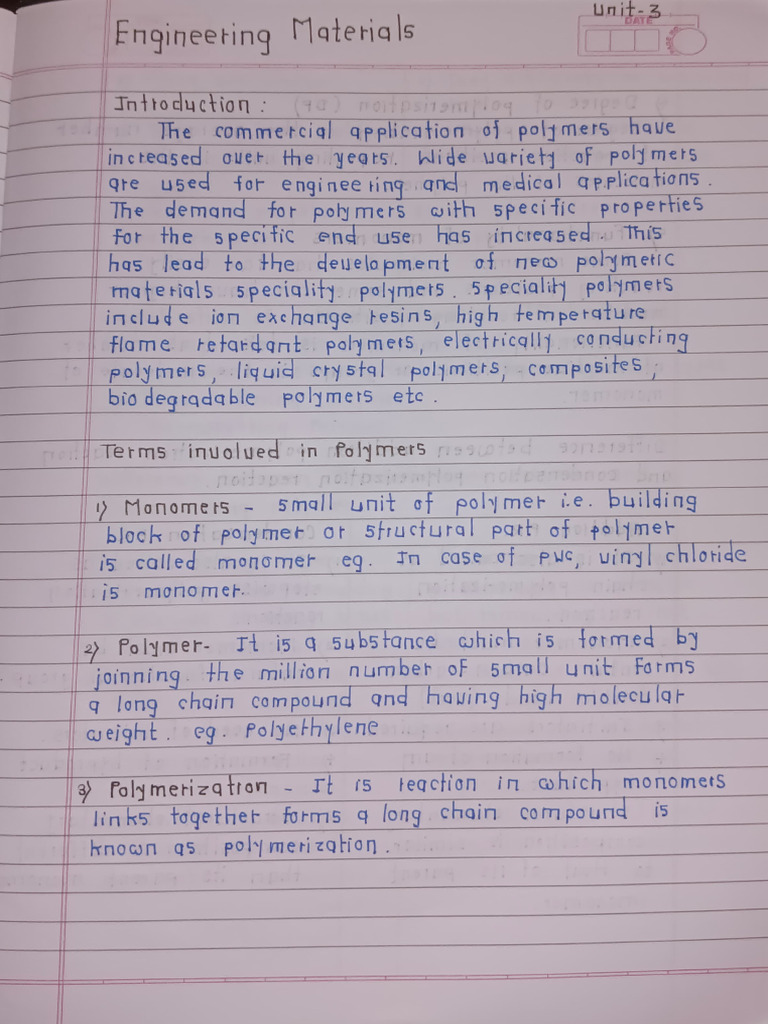 Unit-3
DATE
Engineering Materials
Introduction :
The commercial application of polymers have
increased over the years. Wide variety of polymers
are used for engineering and medical applications.
The demand for polymers with specific properties
for the specific end use has increased. This
has lead to the development of new polymeric
materials speciality polymers. speciality polymers
include ion exchange resins, high temperature
flame retardant polymers, electrically conducting
polymers, liquid crystal polymers, composites,
biodegradable polymers etc.
Terms involved in Polymers
1) Monomers - small unit of polymer i.e. building
block of polymer or structural part of polymer
is called monomer eg. In case of PVC, vinyl chloride
is monomer.
2) Polymer- It is a substance which is formed by
joinning the million number of small unit forms
a long chain compound and having high molecular
weight. eg. Polyethylene
3) Polymerization - It is reaction in which monomers
links together forms a long chain compound is
known as polymerization.